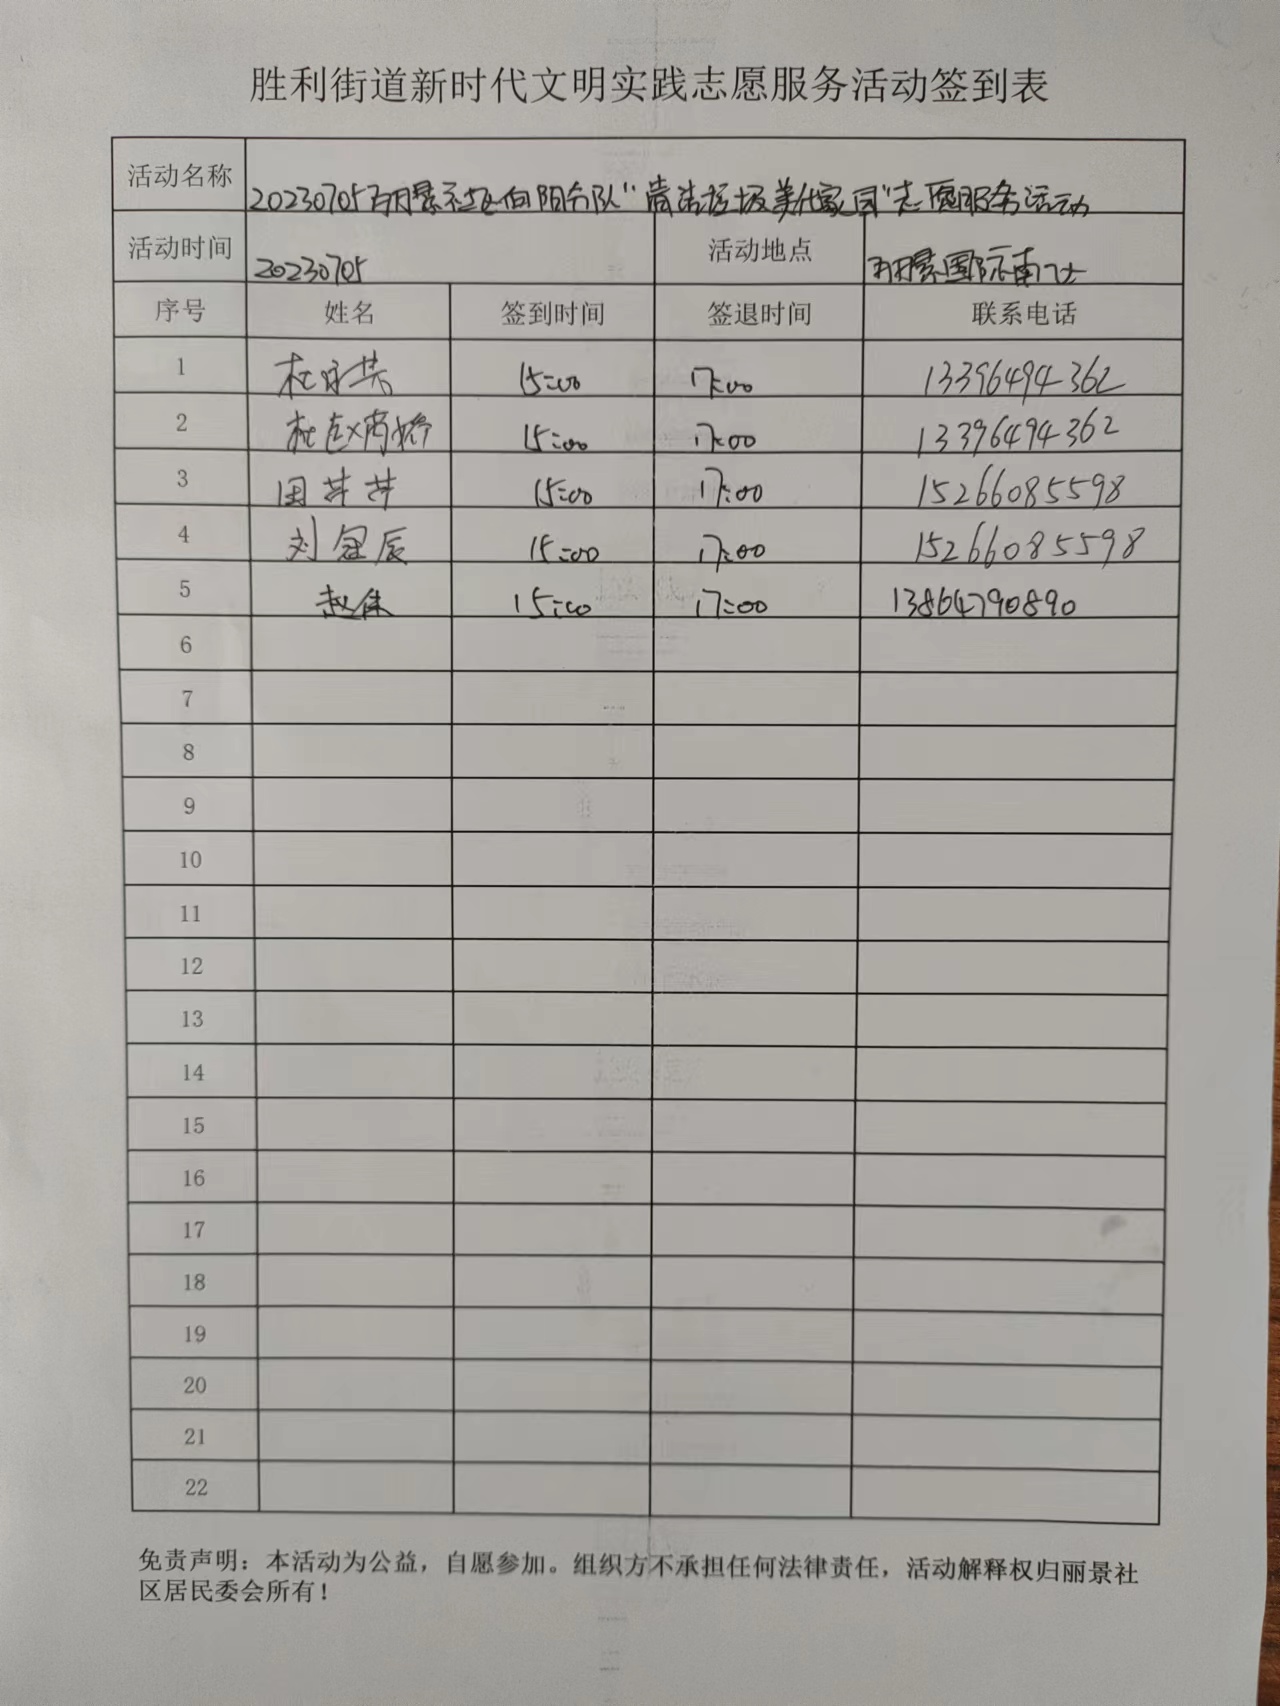 胜利街道新时代文明实践志愿服务活动签到表
活动名称 20230705丽景社区向阳分队“清洁垃圾美化家园”志愿服务活动
活动时间 20230705 活动地点 丽景国际南门
序号 姓名 签到时间 签退时间 联系电话
1 杜 15:00 17:00 13396494362
2 杜赵 15:00 17:00 13396494362
3 田芊芊 15:00 17:00 15266085598
4 刘冠辰 15:00 17:00 15266085598
5 赵 15:00 17:00 13864790890
6
7
8
9
10
11
12
13
14
15
16
17
18
19
20
21
22
免责声明：本活动为公益，自愿参加。组织方不承担任何法律责任，活动解释权归丽景社
区居民委会所有！